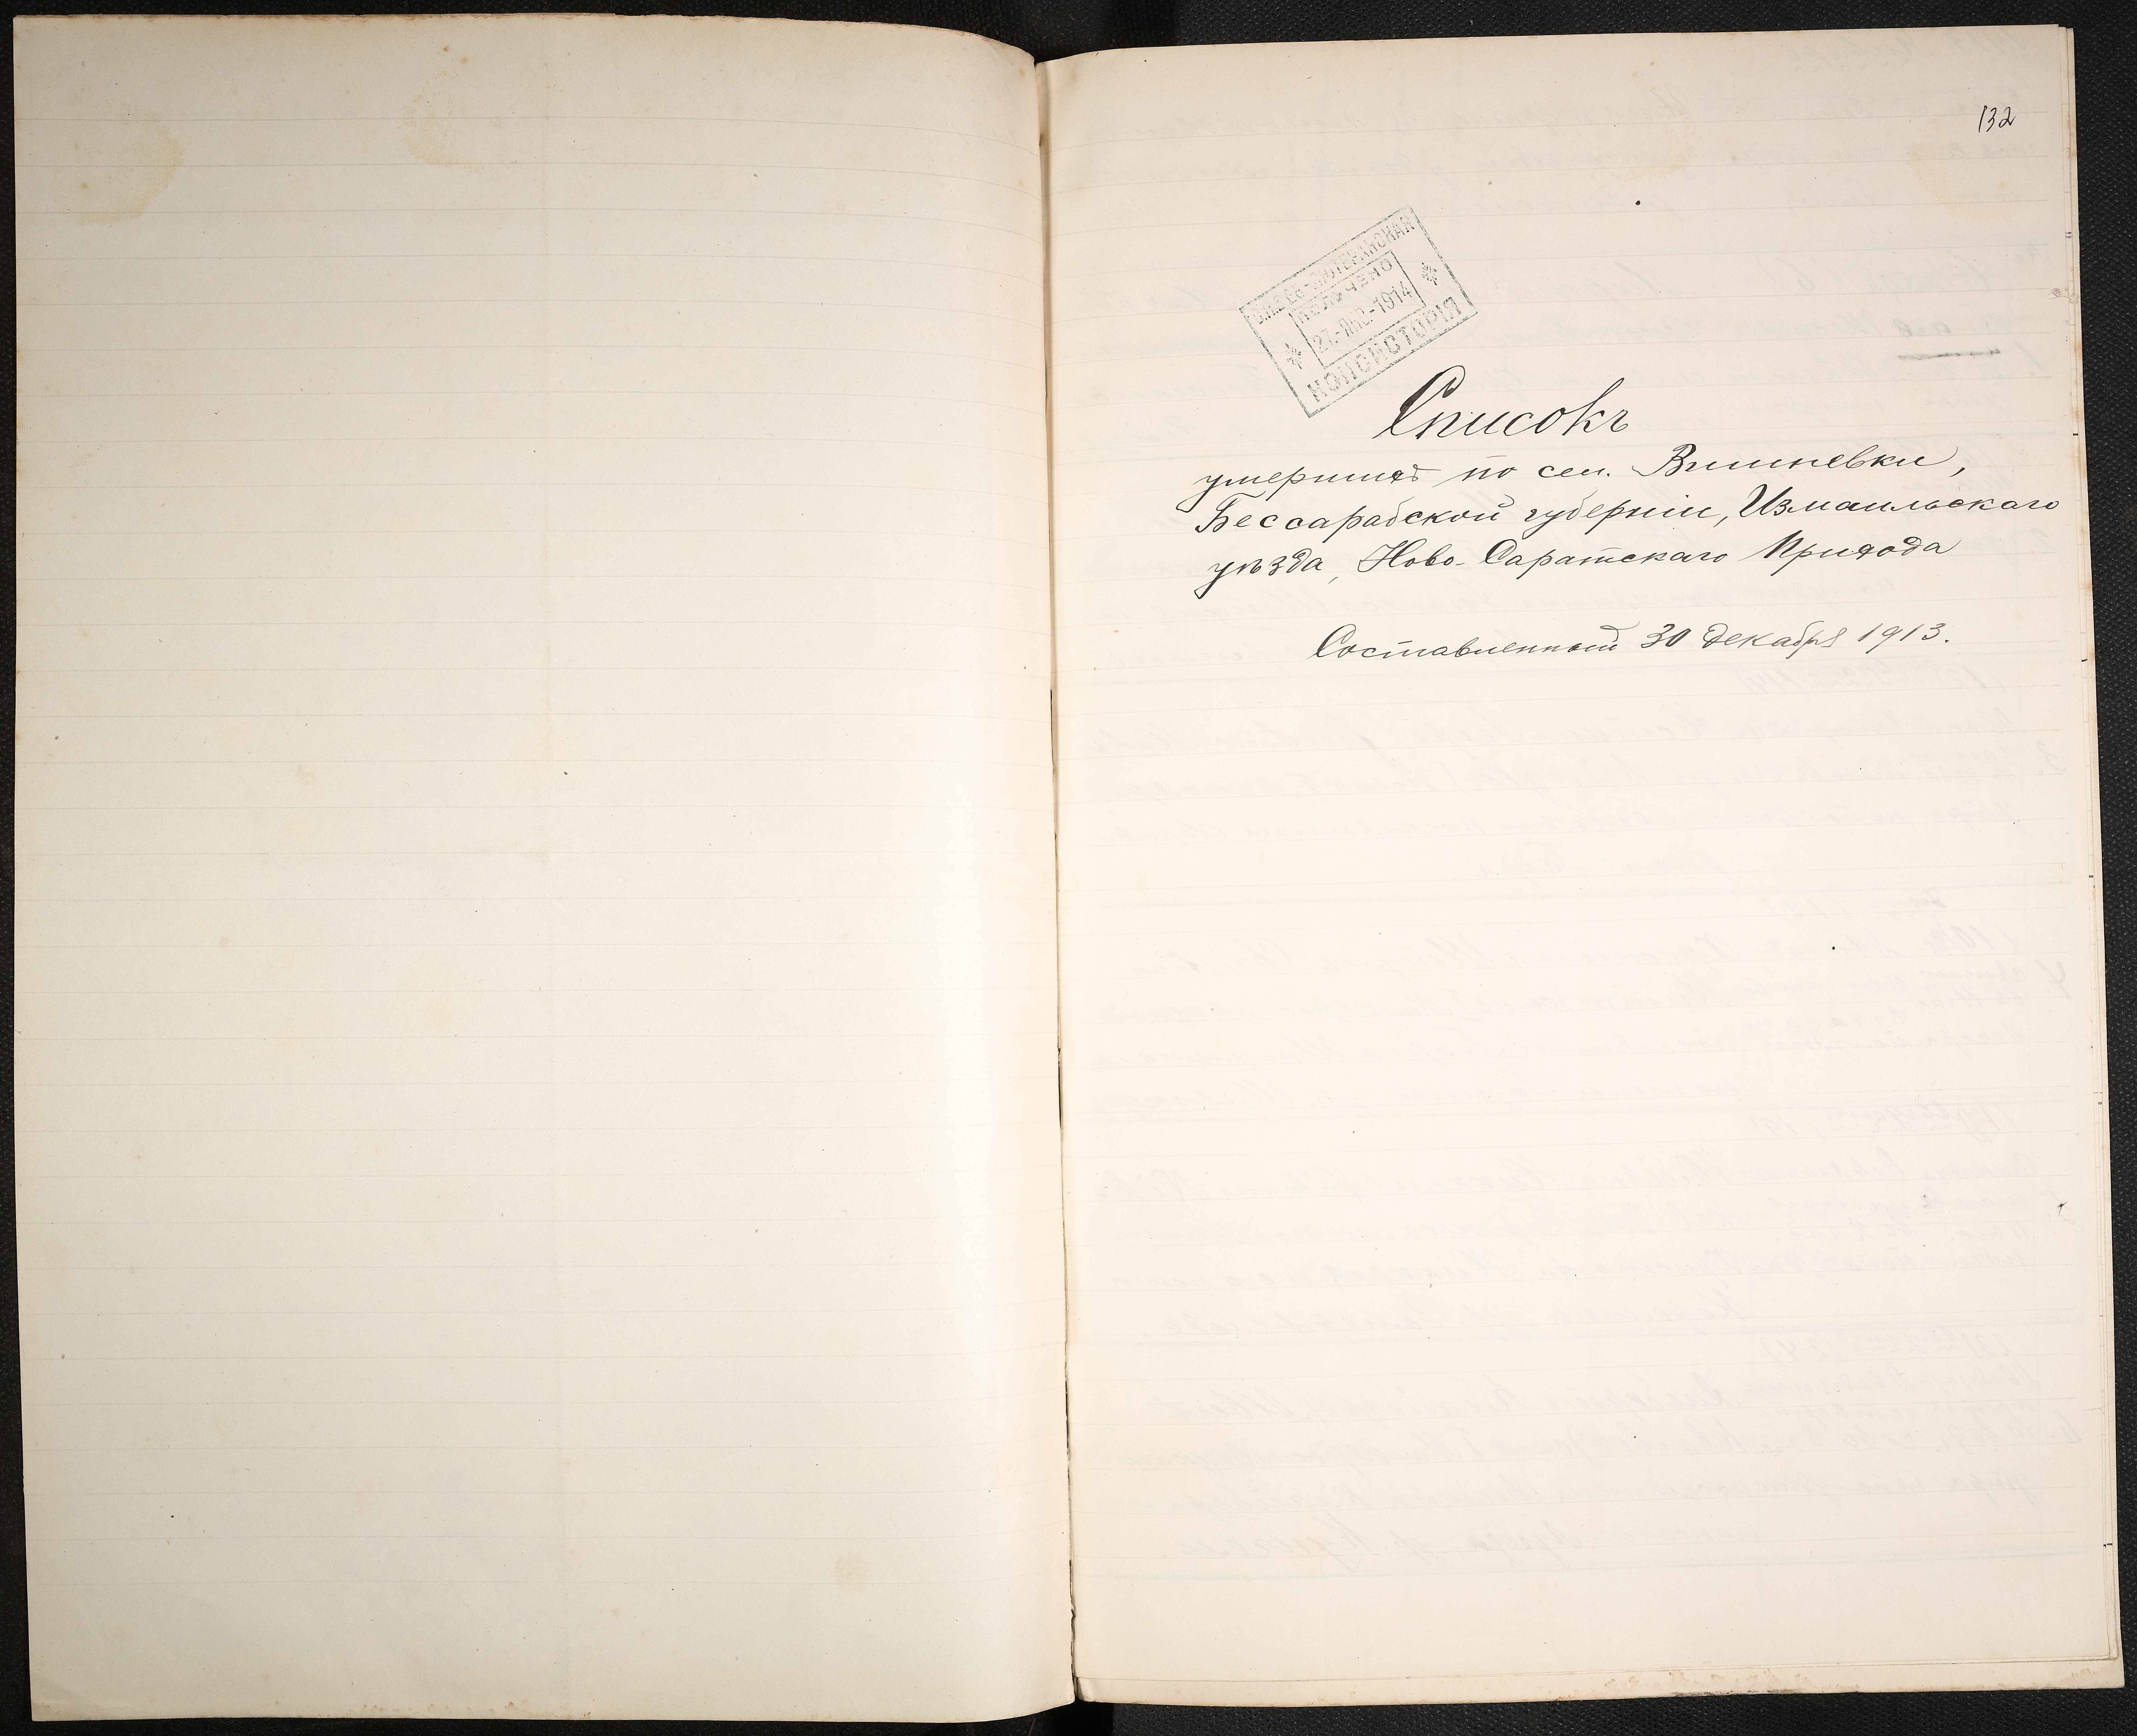 132
С.П.Б. Ев.-ЛЮТЕРАНСКАЯ
ПОЛУЧЕНО
27.-ЯНВ.-1914
КОНСИСТОРІЯ
Списокъ
умершихъ по сел. Вишневки,
Бессарабской губерніи, Измаильскаго
уѣзда, Ново-Саратскаго Прихода
Составленный 30 декабря 1913.